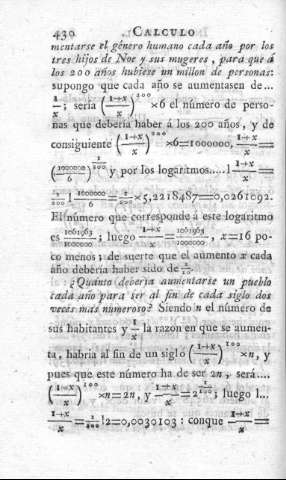 430 CALCULO
mentarse el género humano cada año por los
tres hijos de Noe y sus mugeres, para que á
los 200 años hubiese un millon de personas:
supongo que cada año se aumentasen de...
1/x; sería ((1+x)/x)^200 ×6 el número de perso-
nas que debería haber á los 200 años, y de
consiguiente ((1+x)/x)^200 ×6=1000000, (1+x)/x=
(1000000/6)^(1/200) y por los logaritmos.....l (1+x)/x=
1/200 l 1000000/6 = 1/200 ×5,2218487=0,0261092.
El número que corresponde á este logaritmo
es 1061963/1000000; luego (1+x)/x = 1061963/1000000, x=16 po-
co menos; de suerte que el aumento x cada
año debería haber sido de 1/16.
¿Quánto debería aumentarse un pueblo
cada año para ser al fin de cada siglo dos
veces mas numeroso? Siendo n el número de
sus habitantes y 1/x la razon en que se aumen-
ta, habría al fin de un siglo ((1+x)/x)^100 ×n, y
pues que este número ha de ser 2n, será....
((1+x)/x)^100 ×n=2n, y (1+x)/x=2^(1/100); luego l...
(1+x)/x = 1/100 l2=0,0030103: conque (1+x)/x=